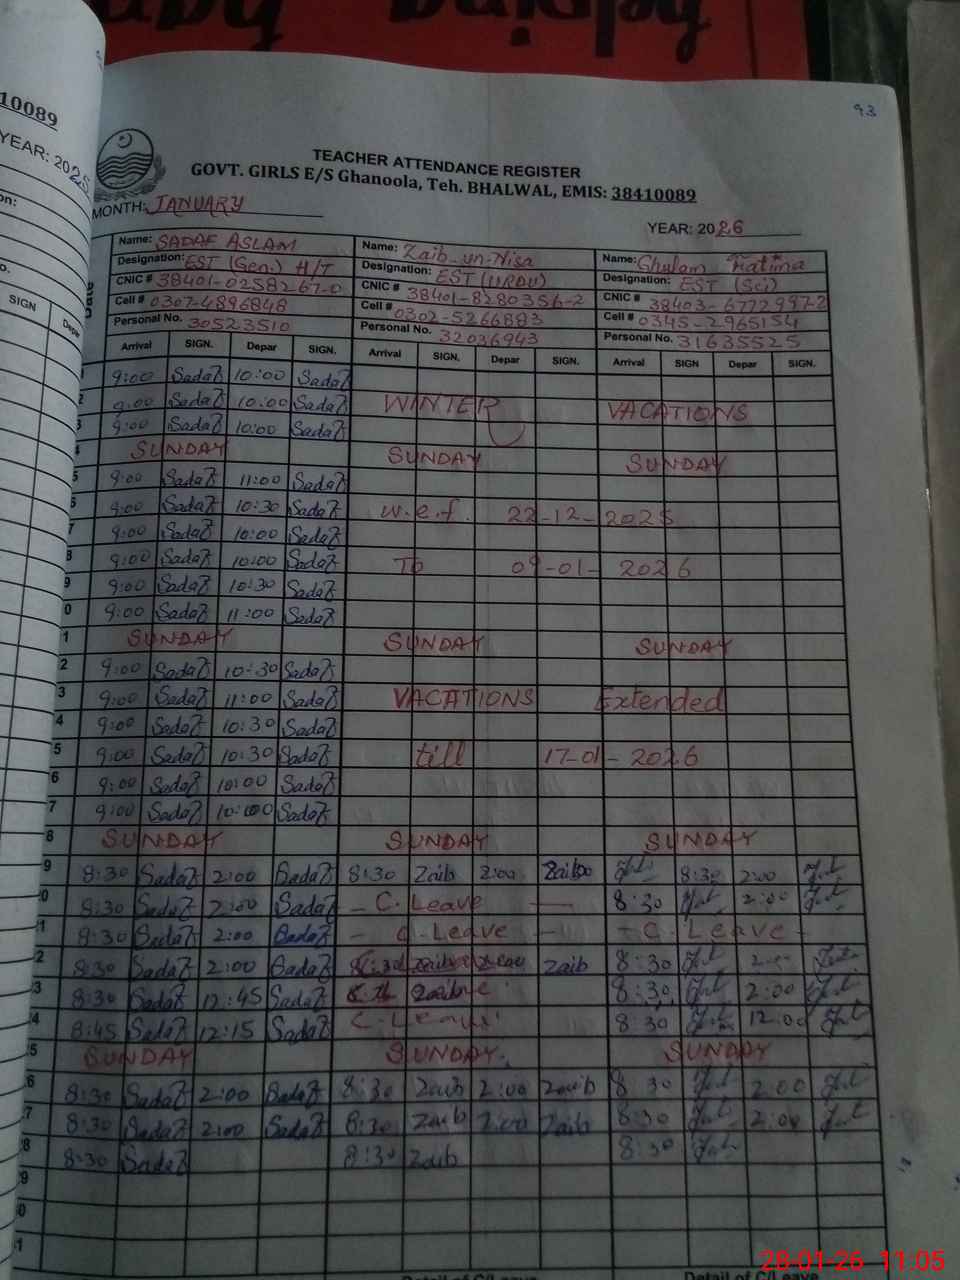 helping
93
10089
YEAR: 2025
TEACHER ATTENDANCE REGISTER
GOVT. GIRLS E/S Ghanoola, Teh. BHALWAL, EMIS: 38410089
MONTH: JANUARY
YEAR: 2026
Name: SADAF ASLAM Name: Zaib-un-Nisa Name: Ghulam Fatima
Designation: EST (Gen.) H/T Designation: EST (URDU) Designation: EST (Sci)
CNIC # 38401-0258267-0 CNIC # 38401-8280356-2 CNIC # 38403-6772997-2
Cell # 0307-4896848 Cell # 0302-5266883 Cell # 0345-2965154
Personal No. 30523510 Personal No. 32036943 Personal No. 31635525
Arrival SIGN. Depar SIGN. Arrival SIGN. Depar SIGN. Arrival SIGN Depar SIGN.
9:00 Sadaf 10:00 Sadaf
2 9:00 Sadaf 10:00 Sadaf WINTER VACATIONS
3 9:00 Sadaf 10:00 Sadaf
4 SUNDAY SUNDAY SUNDAY
5 9:00 Sadaf 11:00 Sadaf
6 9:00 Sadaf 10:30 Sadaf w.e.f. 22-12-2025
7 9:00 Sadaf 10:00 Sadaf
8 9:00 Sadaf 10:00 Sadaf To 09-01-2026
9 9:00 Sadaf 10:30 Sadaf
0 9:00 Sadaf 11:00 Sadaf
1 SUNDAY SUNDAY SUNDAY
2 9:00 Sadaf 10:30 Sadaf
3 9:00 Sadaf 11:00 Sadaf VACATIONS Extended
4 9:00 Sadaf 10:30 Sadaf
5 9:00 Sadaf 10:30 Sadaf till 17-01-2026
6 9:00 Sadaf 10:00 Sadaf
7 9:00 Sadaf 10:00 Sadaf
8 SUNDAY SUNDAY SUNDAY
9 8:30 Sadaf 2:00 Sadaf 8:30 Zaib 2:00 Zaib 8:30 2:00
0 8:30 Sadaf 2:00 Sadaf - C. Leave - 8:30 2:00
1 8:30 Sadaf 2:00 Sadaf - C. Leave - - C. Leave -
2 8:30 Sadaf 2:00 Sadaf Zaib 8:30 2:00
3 8:30 Sadaf 12:45 Sadaf 8:30 2:00
4 8:45 Sadaf 12:15 Sadaf C. Leave 8:30 12:00
5 SUNDAY SUNDAY SUNDAY
6 8:30 Sadaf 2:00 Sadaf 8:30 Zaib 2:00 Zaib 8:30 2:00
7 8:30 Sadaf 2:00 Sadaf 8:30 Zaib 2:00 Zaib 8:30 2:00
8 8:30 Sadaf 8:30 Zaib 8:30
9
0
1
Detail of C/Leave Detail of C/Leave
28-01-26 11:05